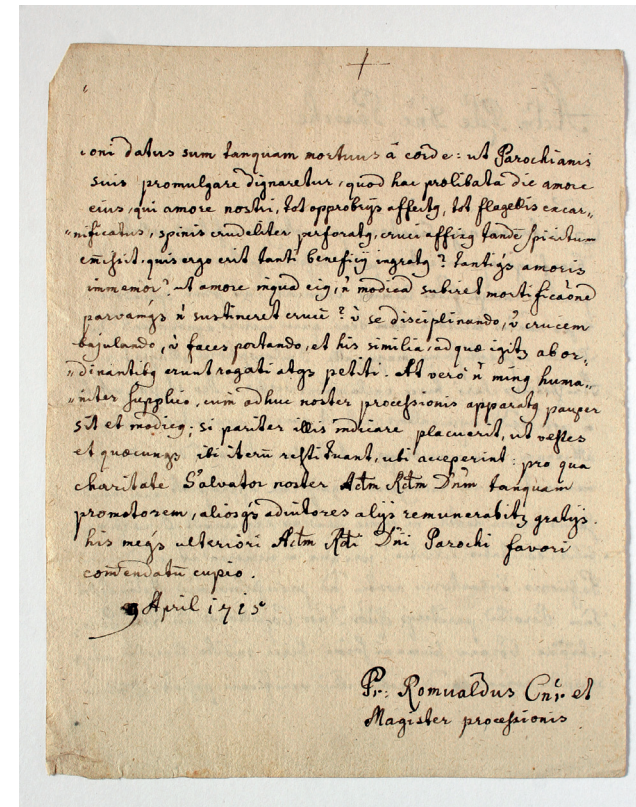 oni datus sum tanquam mortuus â corde: ut Parochianis
suis promulgare dignaretur, quod hac prælibata die amore
eius, qui amore nostri, tot opprobrys affectq, tot flagellis excar„
„nificatus, spinis crudeliter perforatq, cruci affixq tandē spiritum
emisit, quis ergo erit tanti beneficy ingratq? tantiqs amoris
immemor? ut amore inquā eiq, n̄ modicā subiret mortificaōnē
parvamqs n̄ sustineret crucē? v̄ se disciplinando, v̄ crucem
bajulando, v̄ faces portando, et his similia, ad quæ igitʒ ab or„
„dinantibq erunt rogati atqs petiti. At verò n̄ minq huma„
„niter supplico, cum adhuc noster processionis apparatq pauper
sit et modicq; si pariter illis indicare placuerit, ut vestes
et quæcunqs ibi iterū restituant, ubi acceperint: pro qua
charitate Salvator noster Adm Rdm Dnm tanquam
promotorem, aliosqs adiutores alys remunerabitʒ gratys.
his meqs ulteriori Adm Rdi Dni Parochi favori
com̄endatū cupio.
9 April 1715
Fr: Romualdus Cnr et
Magister processionis